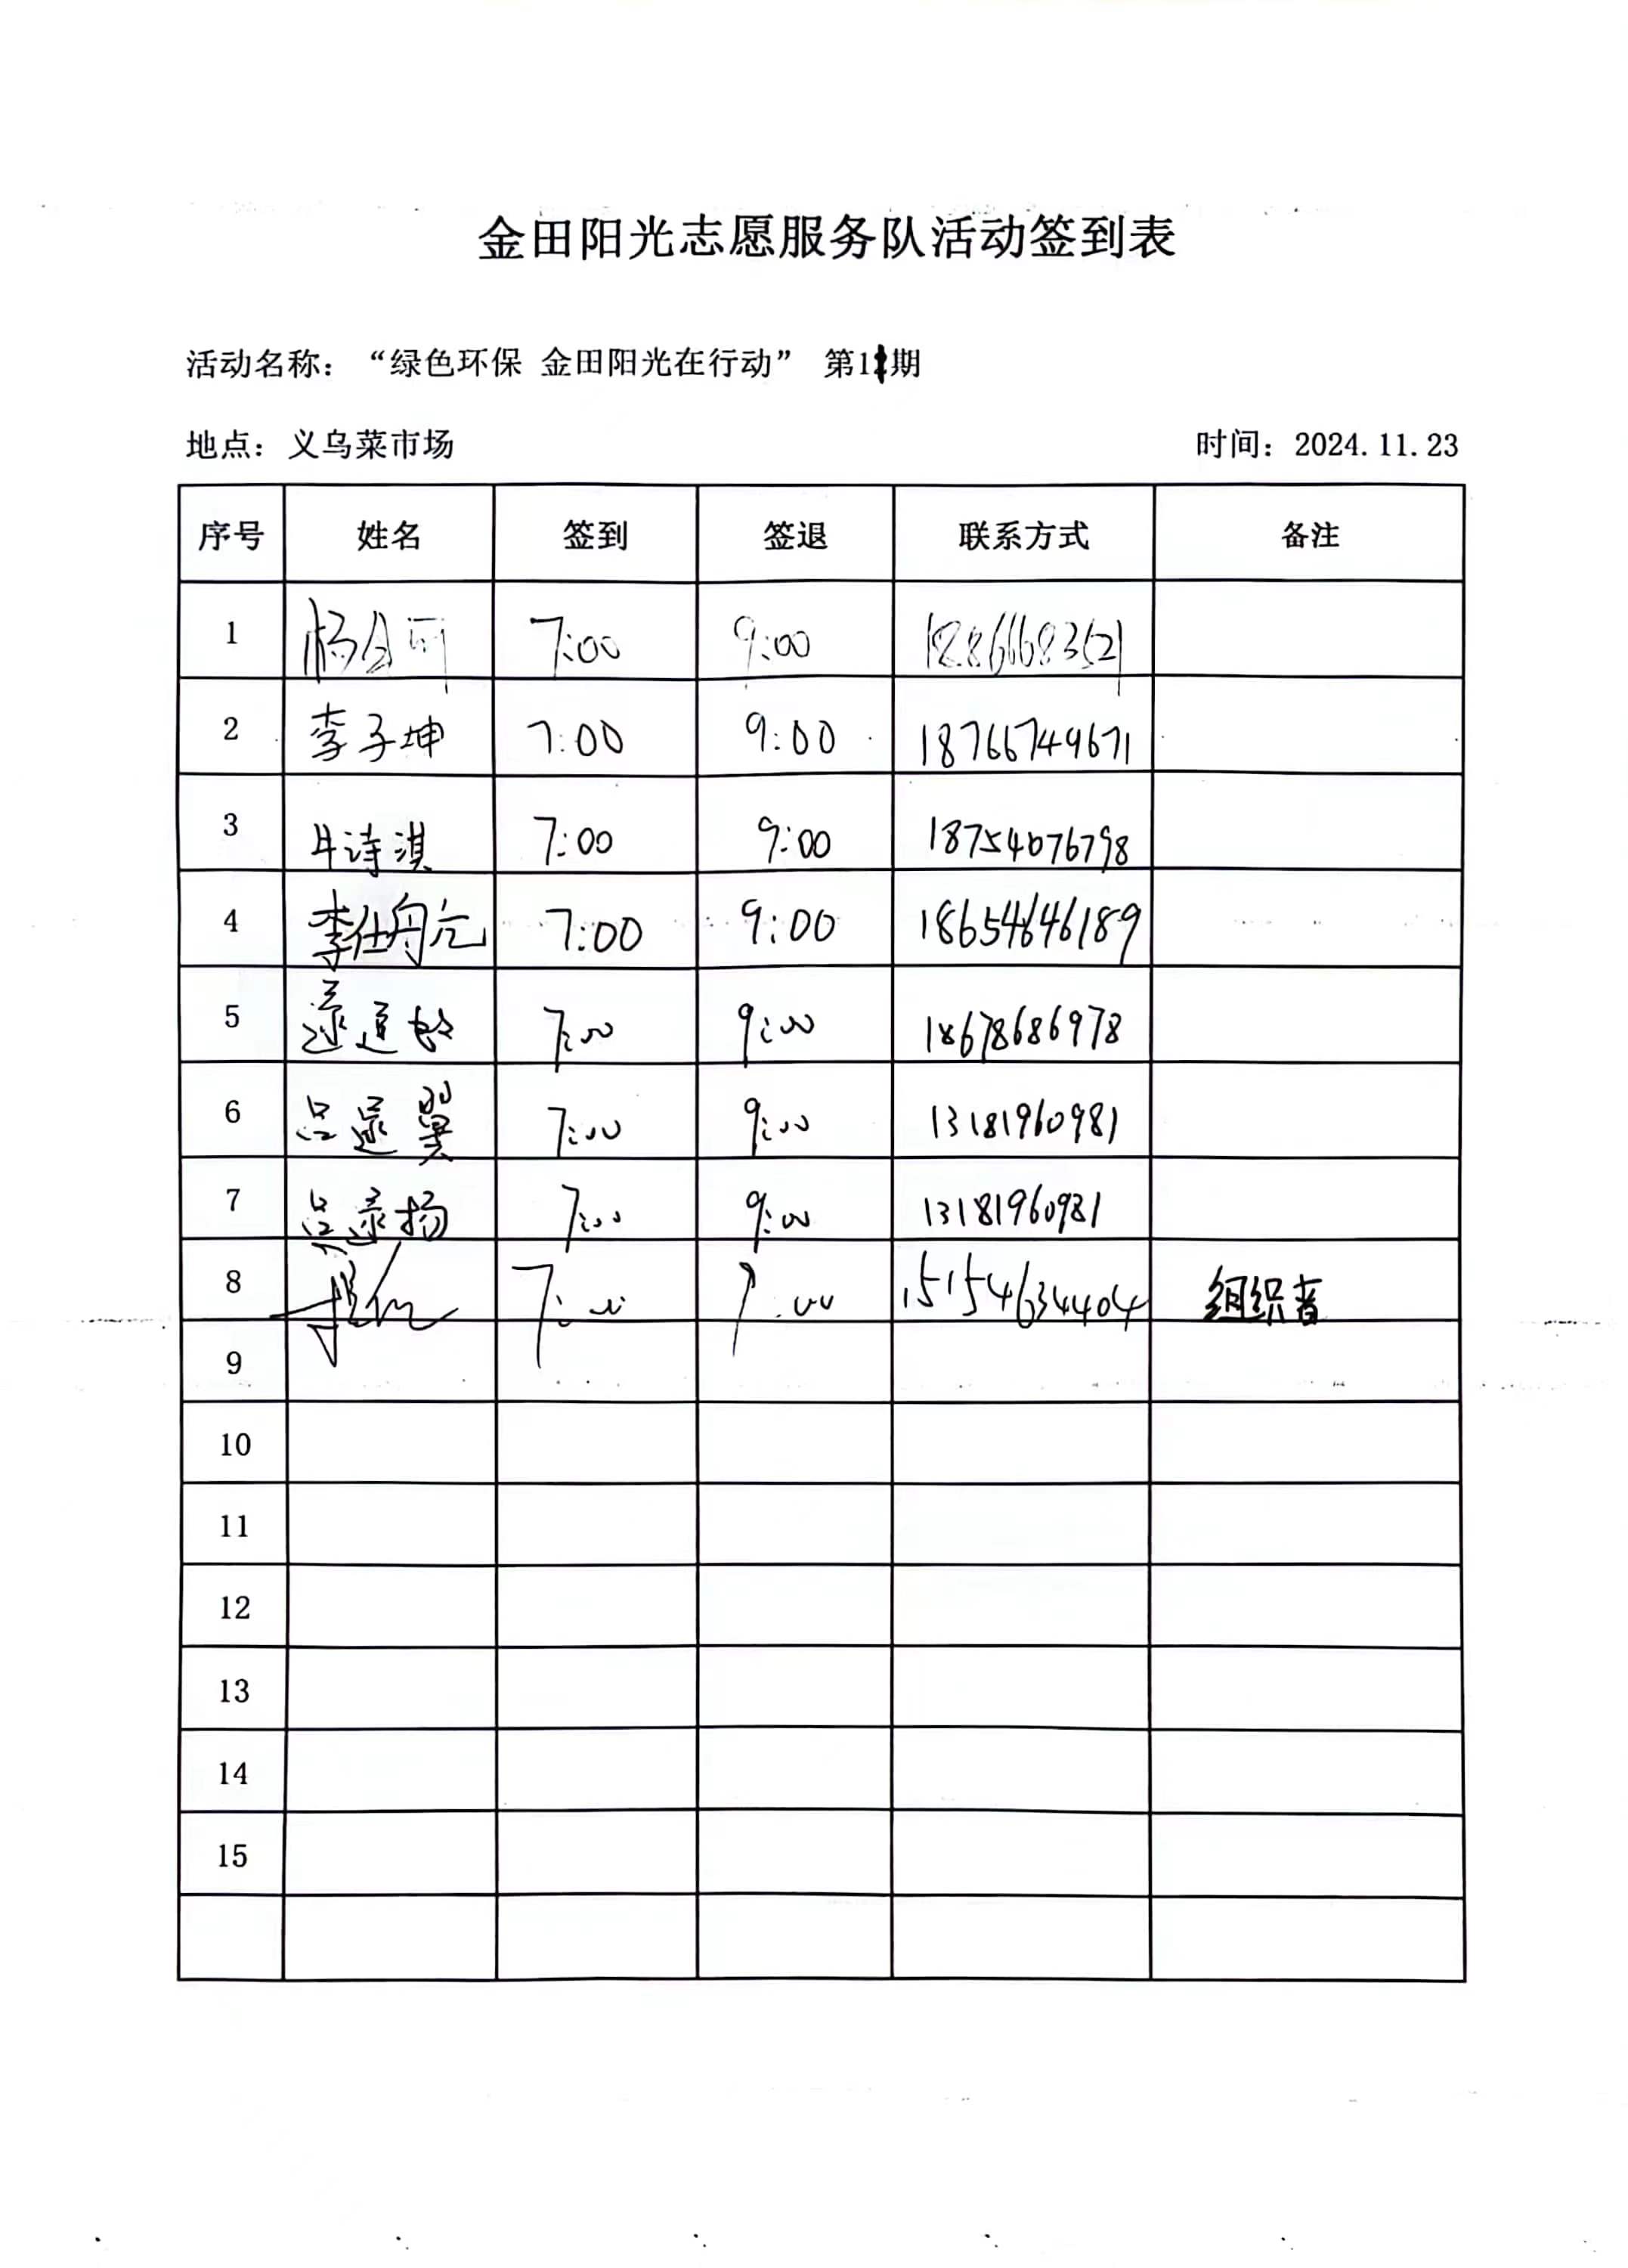 金田阳光志愿服务队活动签到表
活动名称：“绿色环保 金田阳光在行动” 第11期
地点：义乌菜市场 时间：2024.11.23
序号 姓名 签到 签退 联系方式 备注
1 7:00 9:00
2 李子坤 7:00 9:00 18766749671
3 牛诗淇 7:00 9:00 18754076798
4 李仕舟元 7:00 9:00 18654646189
5 7:00 9:00 18678686978
6 吕逯翼 7:00 9:00 13181960981
7 吕逯扬 7:00 9:00 13181960981
8 7:00 9:00 15154634404 组织者
9
10
11
12
13
14
15